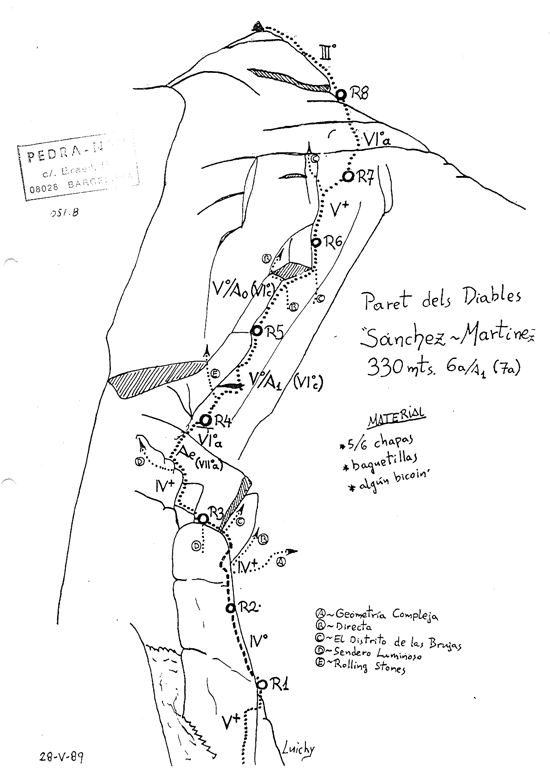 III°
R8
VI°a
R7
V+
R6
V°/A0 (VI°c)
R5
V°/A1 (VI°c)
R4
VI°a
Ae (VII°a)
IV+
R3
IV+
R2
IV°
R1
V+
PEDRA-N
08028 BARCEL
051.B
Paret dels Diables
"Sánchez~Martinez
330 mts. 6a/A1 (7a)
MATERIAL
*5/6 chapas
*baguetillas
*algún bicoin'
C
B
B
C
E
D
C
B
A
D
A~Geometría Compleja
B~Directa
C~El Distrito de las Brujas
D~Sendero Luminoso
E~Rolling Stones
28-V-89
Luichy